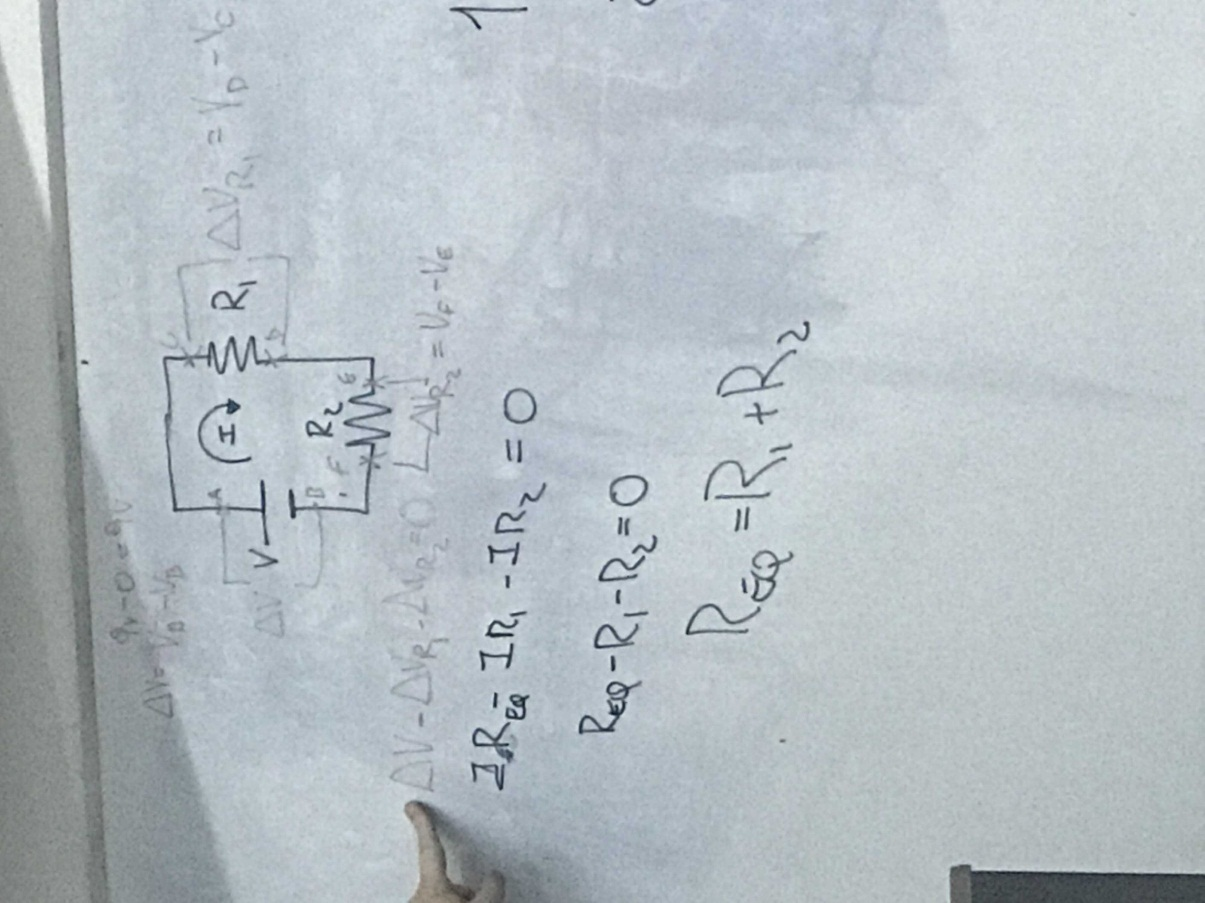 9V-0=9V
ΔV=V_A-V_B
ΔV
V
A
B
I
C
D
R₁
ΔV_R₁ = V_D - V_C
R₂
F
E
ΔV_R₂ = V_F - V_E
ΔV - ΔV_R₁ - ΔV_R₂ = 0
IR_EQ - IR₁ - IR₂ = 0
R_EQ - R₁ - R₂ = 0
R_EQ = R₁ + R₂
1